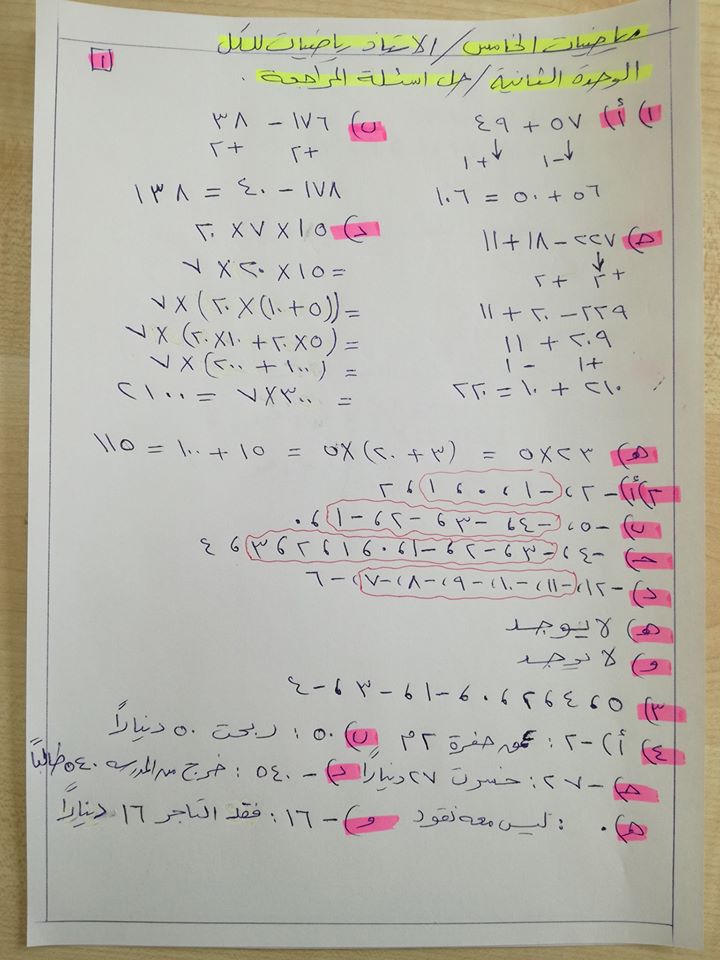 رياضيات الخامس / الأستاذ رياضيات للكل
١
الوحدة الثانية / حل اسئلة المراجعة .
١) أ) ٥٧ + ٤٩
↓ ١- ↓ ١+
٥٦ + ٥٠ = ١٠٦
ب) ١٧٦ - ٣٨
٢+ ٢+
١٧٨ - ٤٠ = ١٣٨
ج) ٢٢٧ - ١٨ + ١١
↓
٢+ ٢+
٢٢٩ - ٢٠ + ١١
٢٠٩ + ١١
١+ ١-
٢١٠ + ١٠ = ٢٢٠
د) ١٥ × ٧ × ٢٠
= ١٥ × ٢٠ × ٧
= ((٥+١٠) × ٢٠) × ٧
= (٥×٢٠ + ١٠×٢٠) × ٧
= (١٠٠ + ٢٠٠) × ٧
= ٣٠٠×٧ = ٢١٠٠
هـ) ٢٣×٥ = (٣ + ٢٠)×٥ = ١٥ + ١٠٠ = ١١٥
٢) أ) -٢، -١، ٠، ١، ٢
ب) -٥، -٤، -٣، -٢، -١، ٠
ج) -٤، -٣، -٢، -١، ٠، ١، ٢، ٣، ٤
د) -١٢، -١١، -١٠، -٩، -٨، -٧، -٦
هـ) لا يوجد
و) لا يوجد
٣) ٥، ٤، ٢، ٠، -١، -٣، -٤
٤) أ) -٢ : عمق حفرة ٢م ب) ٥٠ : ربحت ٥٠ ديناراً
ج) -٢٧ : خسرت ٢٧ ديناراً د) -٥٤٠ : خرج من المدرسه ٥٤٠ طالباً
هـ) ٠ : ليس معه نقود و) -١٦ : فقد التاجر ١٦ ديناراً